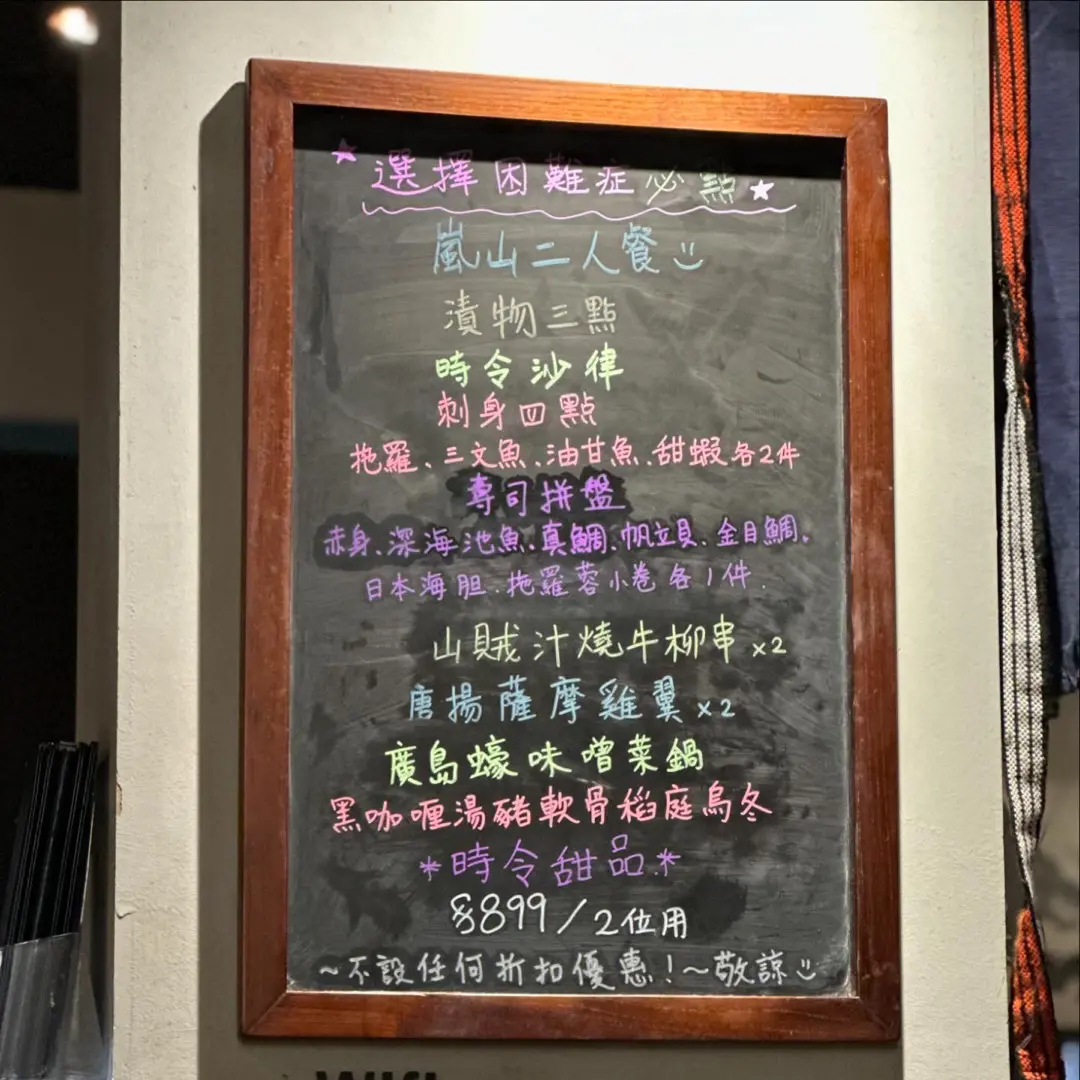 ★選擇困難症必點★
嵐山二人餐
漬物三點
時令沙律
刺身四點
拖羅、三文魚、油甘魚、甜蝦各2件
壽司拼盤
赤身、深海池魚、真鯛、帆立貝、金目鯛、
日本海胆、拖羅蓉小卷各1件.
山賊汁燒牛柳串x2
唐揚薩摩雞翼x2
廣島蠔味噌菜鍋
黑咖喱湯豬軟骨稻庭烏冬
*時令甜品*
$899/2位用
~不設任何折扣優惠!~敬諒